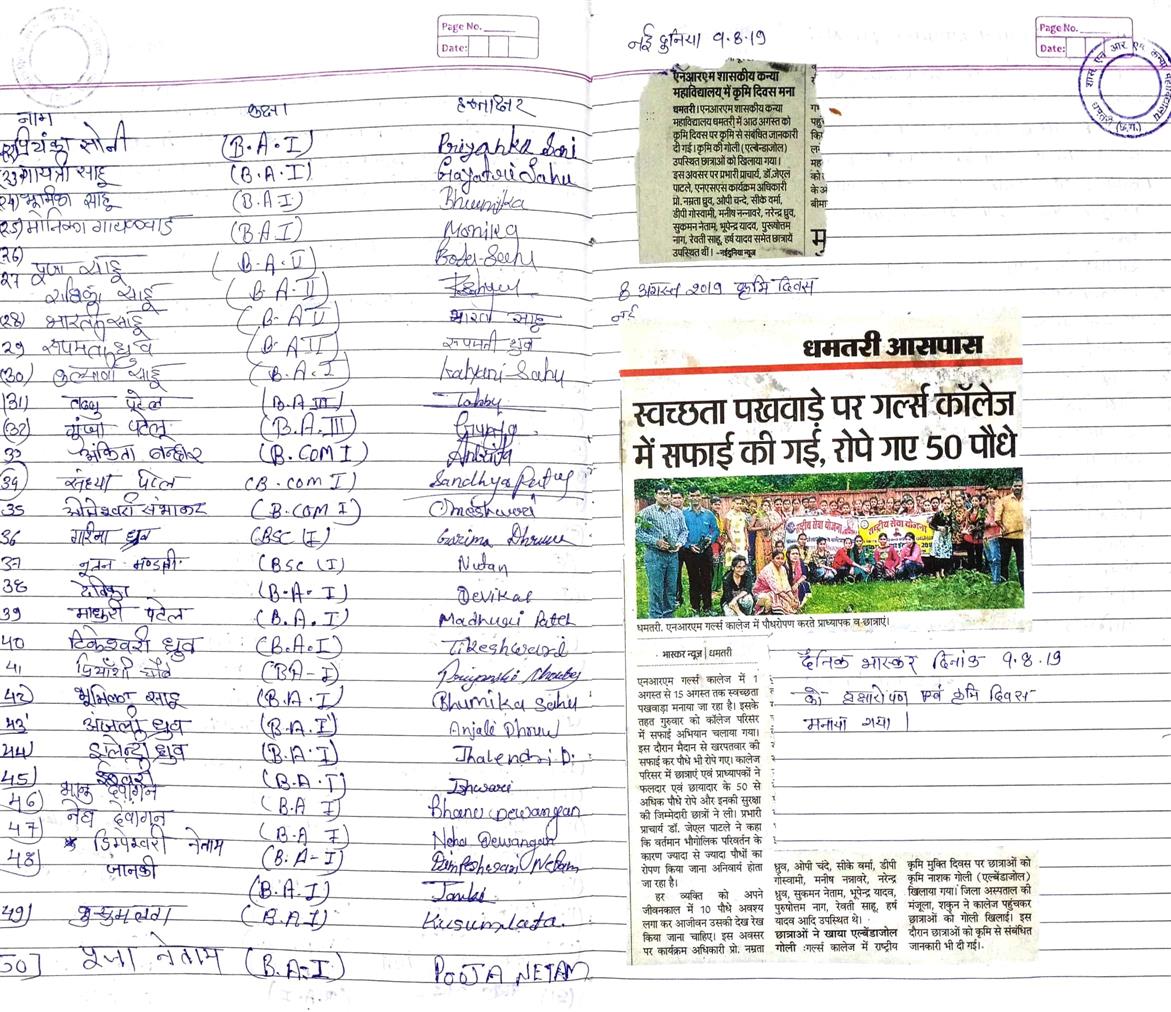 Page No.
Date:
नाम कक्षा हस्ताक्षर
प्रियंका सोनी (B.A.I) Priyanka Soni
(23) गायत्री साहू (B.A.I) Gayatri Sahu
(24) भूमिका साहू (B.A.I) Bhumika
(25) मोनिका गायकवाड (B.A.I) Monika
(26) पूजा साहू (B.A.II)
27 राधिका साहू (B.A.II)
(28) भारती साहू (B.A.II) भारती साहू
29 रूपमती ध्रुव (B.A.II) रूपमती ध्रुव
(30) कल्याणी साहू (B.A.I) Kalyani Sahu
(31) तब्बू पटेल (B.A.III) Tabby
(32) गुंजा पटेल (B.A.III) Gunja
33 अंकिता (B.COM I) Ankita
(34) संध्या पटेल (B.COM I) Sandhya Patel
35 (B.COM I) Omeshwari
36 गरिमा ध्रुव (BSC I) Garima Dhruw
37 नूतन मण्डावी (BSC I) Nutan
38 देविका (B.A.I) Devika
39 माधुरी पटेल (B.A.I) Madhuri Patel
40 टिकेश्वरी ध्रुव (B.A.I) Tikeshwari
41 प्रियाँशी चौबे (BA-I) Priyanshi Choubey
42) भूमिका साहू (B.A.I) Bhumika Sahu
43 अंजली ध्रुव (B.A.I) Anjali Dhruw
44) ध्रुव (B.A.I) Jhalendri D.
45) ईश्वरी (B.A.I) Ishwari
46) भानु देवांगन (B.A I) Bhanu Dewangan
47) नेहा देवांगन (B.A I) Neha Dewangan
48) डिम्पेश्वरी नेताम (B.A-I) Dimpeshwari Netam
जानकी (B.A.I) Janki
49) कुसुमलता (B.A.I) Kusumlata
50] पूजा नेताम (B.A.I) POOJA NETAM
नई दुनिया 9.8.19
Page No.
Date:
एनआरएम शासकीय कन्या
महाविद्यालय में कृमि दिवस मना
धमतरी। एनआरएम शासकीय कन्या
महाविद्यालय धमतरी में आठ अगस्त को
कृमि दिवस पर कृमि से संबंधित जानकारी
दी गई। कृमि की गोली (एल्बेन्डाजोल)
उपस्थित छात्राओं को खिलाया गया।
इस अवसर पर प्रभारी प्राचार्य, डॉ.जेएल
पाटले, एनएसएस कार्यक्रम अधिकारी
प्रो. नम्रता ध्रुव, ओपी चन्दे, सीके वर्मा,
डीपी गोस्वामी, मनीष नन्नावरे, नरेन्द्र ध्रुव,
सुकमन नेताम, भूपेन्द्र यादव, पुरूषोत्तम
नाग, रेवती साहू, हर्ष यादव समेत छात्रायें
उपस्थित थीं। -नईदुनिया न्यूज
8 अगस्त 2019 कृमि दिवस
नई
धमतरी आसपास
स्वच्छता पखवाड़े पर गर्ल्स कॉलेज
में सफाई की गई, रोपे गए 50 पौधे
राष्ट्रीय सेवा योजना
राष्ट्रीय सेवा योजना
धमतरी. एनआरएम गर्ल्स कालेज में पौधरोपण करते प्राध्यापक व छात्राएं।
भास्कर न्यूज | धमतरी
एनआरएम गर्ल्स कालेज में 1
अगस्त से 15 अगस्त तक स्वच्छता
पखवाड़ा मनाया जा रहा है। इसके
तहत गुरुवार को कॉलेज परिसर
में सफाई अभियान चलाया गया।
इस दौरान मैदान से खरपतवार की
सफाई कर पौधे भी रोपे गए। कालेज
परिसर में छात्राएं एवं प्राध्यापकों ने
फलदार एवं छायादार के 50 से
अधिक पौधे रोपे और इनकी सुरक्षा
की जिम्मेदारी छात्रों ने ली। प्रभारी
प्राचार्य डॉ. जेएल पाटले ने कहा
कि वर्तमान भौगोलिक परिवर्तन के
कारण ज्यादा से ज्यादा पौधों का
रोपण किया जाना अनिवार्य होता
जा रहा है।
हर व्यक्ति को अपने
जीवनकाल में 10 पौधे अवश्य
लगा कर आजीवन उसकी देख रेख
किया जाना चाहिए। इस अवसर
पर कार्यक्रम अधिकारी प्रो. नम्रता
ध्रुव, ओपी चंदे, सीके वर्मा, डीपी
गोस्वामी, मनीष नन्नावरे, नरेन्द्र
ध्रुव, सुकमन नेताम, भूपेन्द्र यादव,
पुरुषोत्तम नाग, रेवती साहू, हर्ष
यादव आदि उपस्थित थे।
छात्राओं ने खाया एल्बेंडाजोल
गोली :गर्ल्स कालेज में राष्ट्रीय
कृमि मुक्ति दिवस पर छात्राओं को
कृमि नाशक गोली (एल्बेंडाजोल)
खिलाया गया। जिला अस्पताल की
मंजूला, शकुन ने कालेज पहुंचकर
छात्राओं को गोली खिलाई। इस
दौरान छात्राओं को कृमि से संबंधित
जानकारी भी दी गई।
दैनिक भास्कर दिनांक 9.8.19
को वृक्षारोपण एवं कृमि दिवस
मनाया गया।